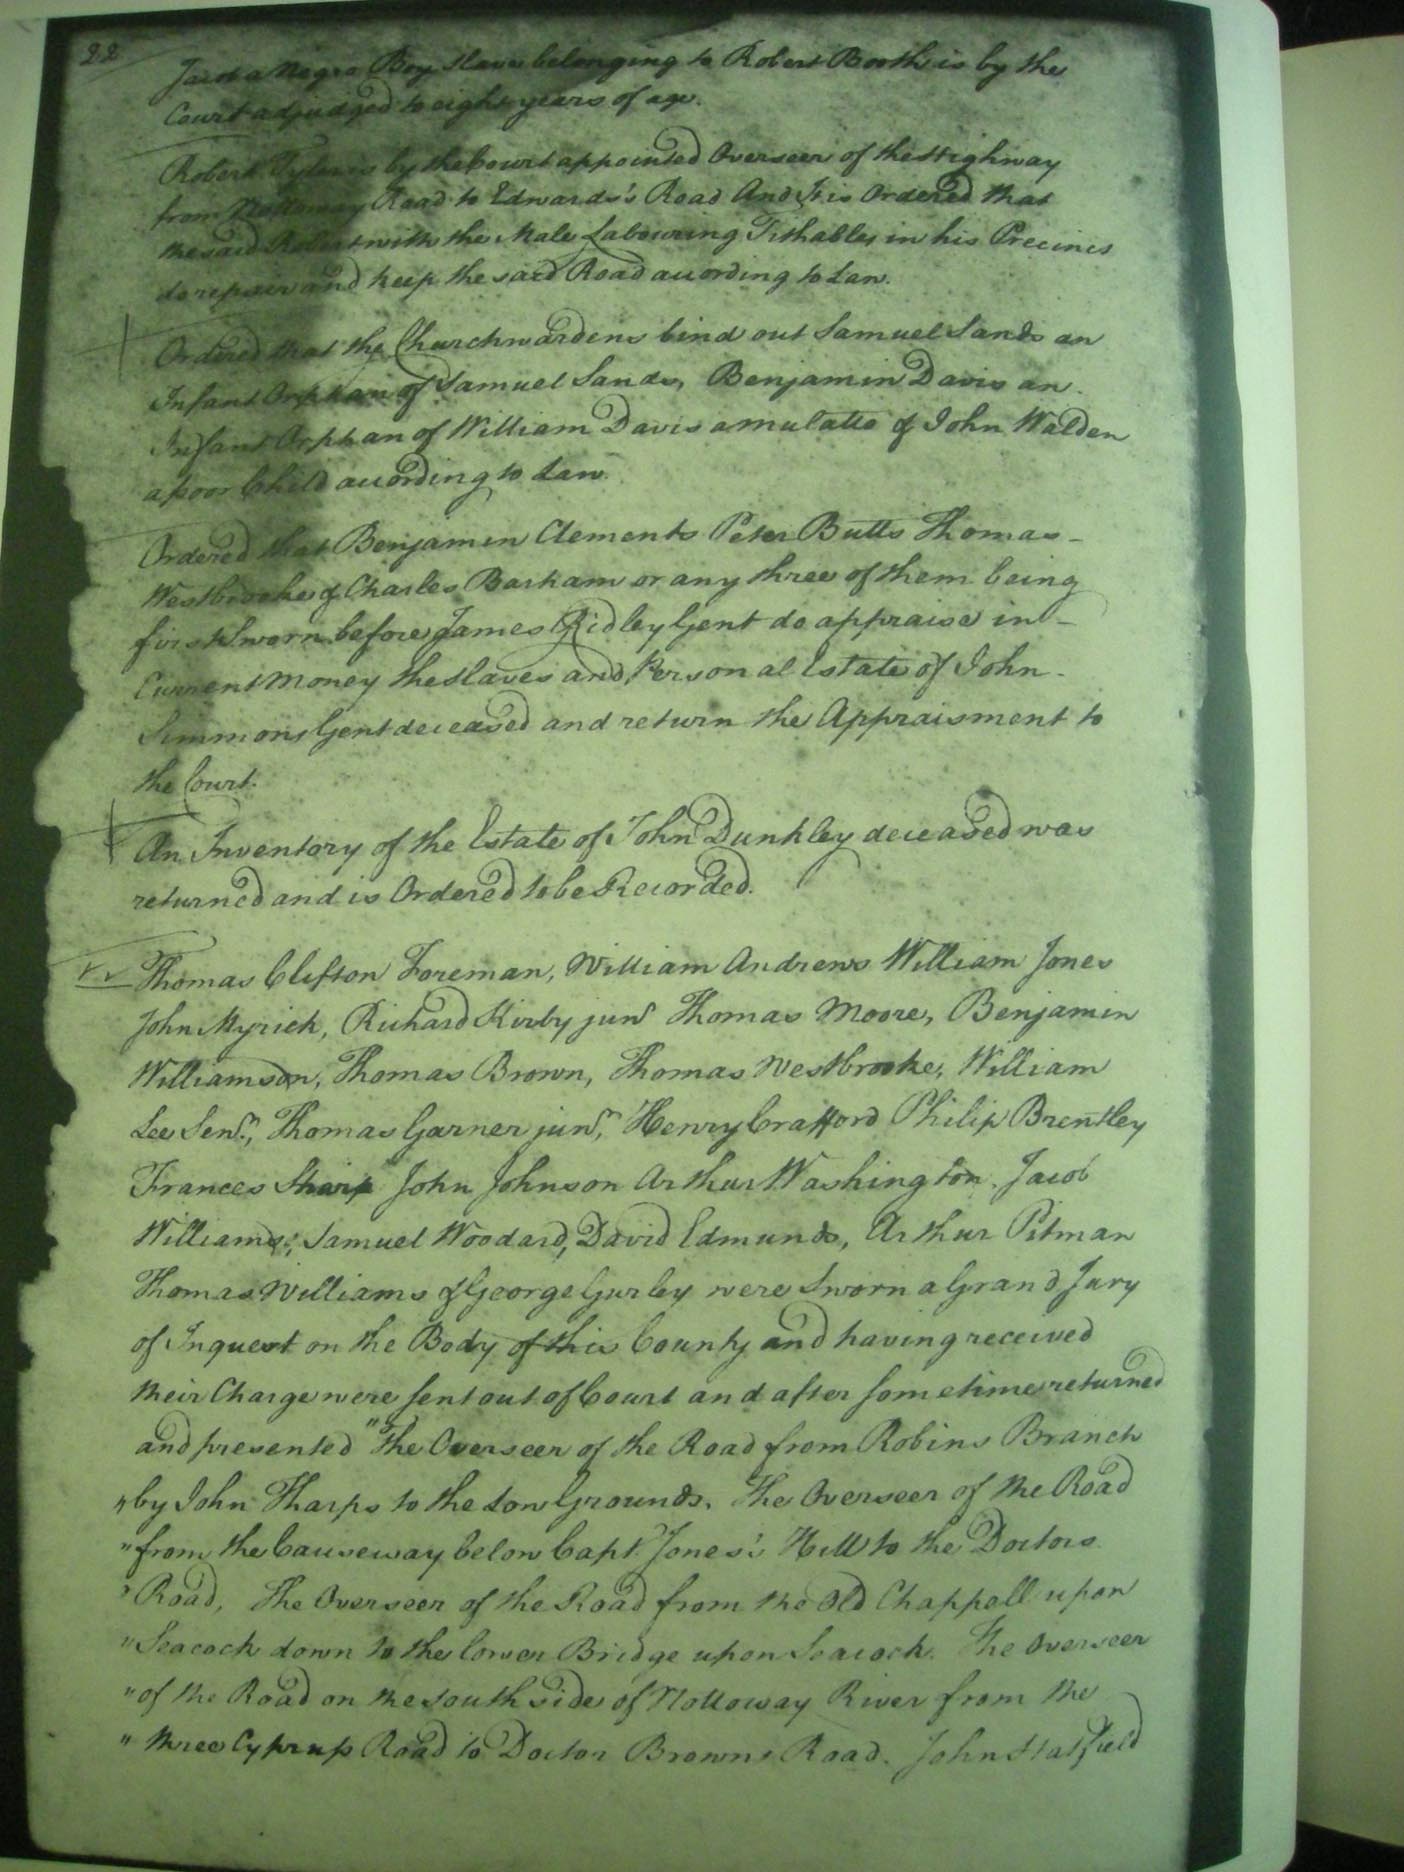 22
Jacob a Negro Boy Slave belonging to Robert Booth is by the
Court adjudged to eight years of age.
Robert is by the Court appointed Overseer of the Highway
from Nottoway Road to Edwards's Road And It is Ordered that
the said Robert with the Male Labouring Tithables in his Precinct
do repair and keep the said Road according to Law.
Ordered that the Churchwardens bind out Samuel Sands an
Infant Orphan of Samuel Sands, Benjamin Davis an
Infant Orphan of William Davis a mulatto & John Walden
a poor Child according to Law.
Ordered that Benjamin Clements Peter Butts Thomas
Westbrooke & Charles Barham or any three of them being
first Sworn before James Ridley Gent do appraise in
Current Money the Slaves and Personal Estate of John
Simmons Gent deceased and return the Appraisment to
the Court.
An Inventory of the Estate of John Dunkley deceased was
returned and is Ordered to be Recorded.
Thomas Clifton Foreman, William Andrews William Jones
John Myrick, Richard Kirby junr Thomas Moore, Benjamin
Williamson, Thomas Brown, Thomas Westbrooke, William
Lee Senr., Thomas Garner junr, Henry Crafford Philip Brentley
Frances Sharp John Johnson Arthur Washington Jacob
Williams, Samuel Woodard, David Edmunds, Arthur Pitman
Thomas Williams & George Gurley were Sworn a Grand Jury
of Inquest on the Body of this County and having received
their Charge were sent out of Court and after sometime returned
and presented "The Overseer of the Road from Robins Branch
"by John Tharps to the Low Grounds. The Overseer of the Road
"from the Causeway below Capt. Jones's Hill to the Doctors
"Road. The Overseer of the Road from the Old Chappell upon
"Seacock down to the lower Bridge upon Seacock. The Overseer
"of the Road on the South side of Nottoway River from the
"three Cyprup Road to Doctor Browns Road. John Hatfield